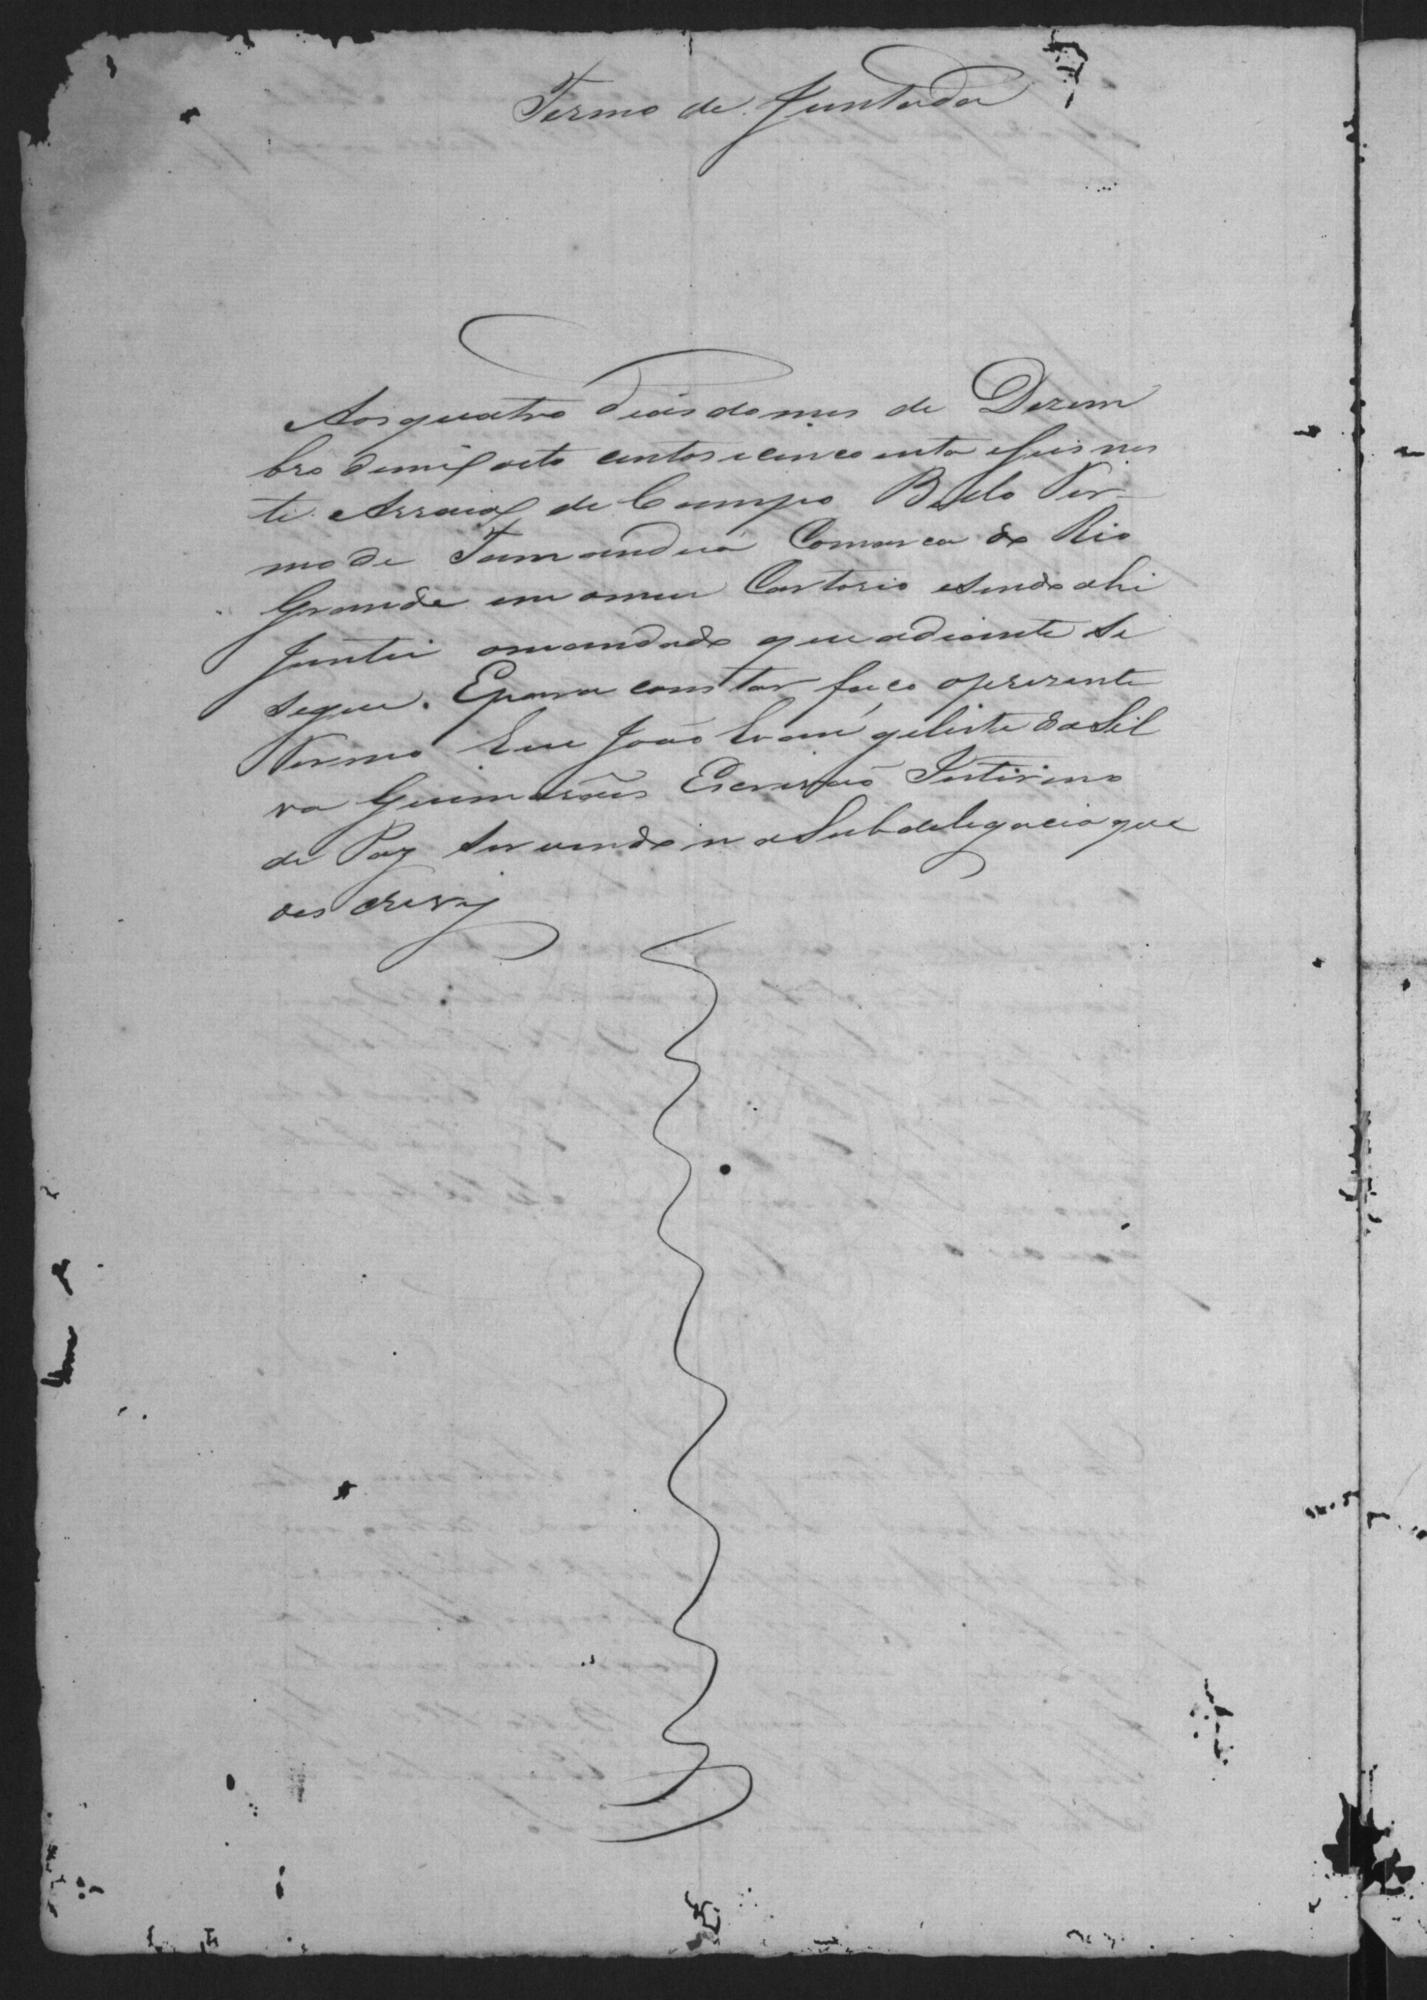 Termo de Juntada
Aos quatro dias do mes de Dezem
bro de mil oito centos e cincoenta e seis nes
te Arraial de Campo Bello Ter
mo de Tamanduá Comarca do Rio
Grande em o meu Cartorio e sendo ahi
Juntei o mandado que adiante se
segue. E para constar faço o prezente
Termo Eu João Evangelista da Sil
va Guimarães Escrivão Intirino
de Paz servindo na Subdelegacia que
o escrevy